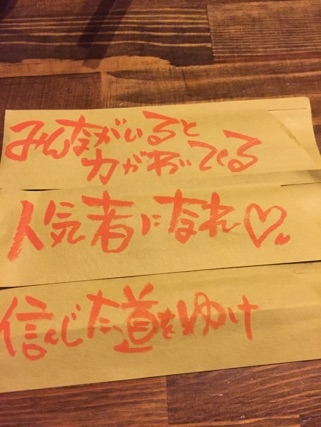 みんながいると
力がわいてくる
人気者になれ♡
信じた道をゆけ